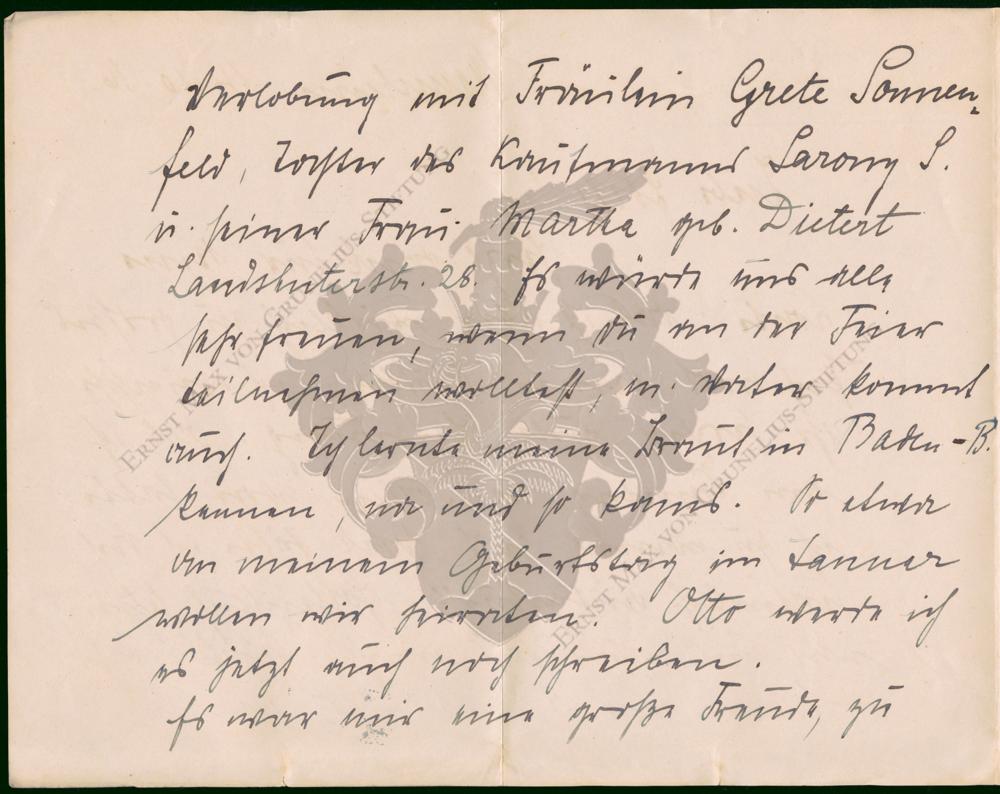 Verlobung mit Fräulein Grete Sonnen-
feld, Tochter des Kaufmanns Sarony S.
u. seiner Frau Martha geb. Dietert
Landshuterstr. 28. Es würde uns alle
sehr freuen, wenn du an der Feier
teilnehmen wolltest, m. Vater kommt
auch. Ich lernte meine Braut in Baden-B.
kennen, na und so kams. So etwa
an meinem Geburtstag im Januar
wollen wir heiraten. Otto werde ich
es jetzt auch noch schreiben.
Es war mir eine große Freude, zu
ERNST MAX VON GRUNELIUS-STIFTUNG
ERNST MAX VON GRUNELIUS-STIFTUNG